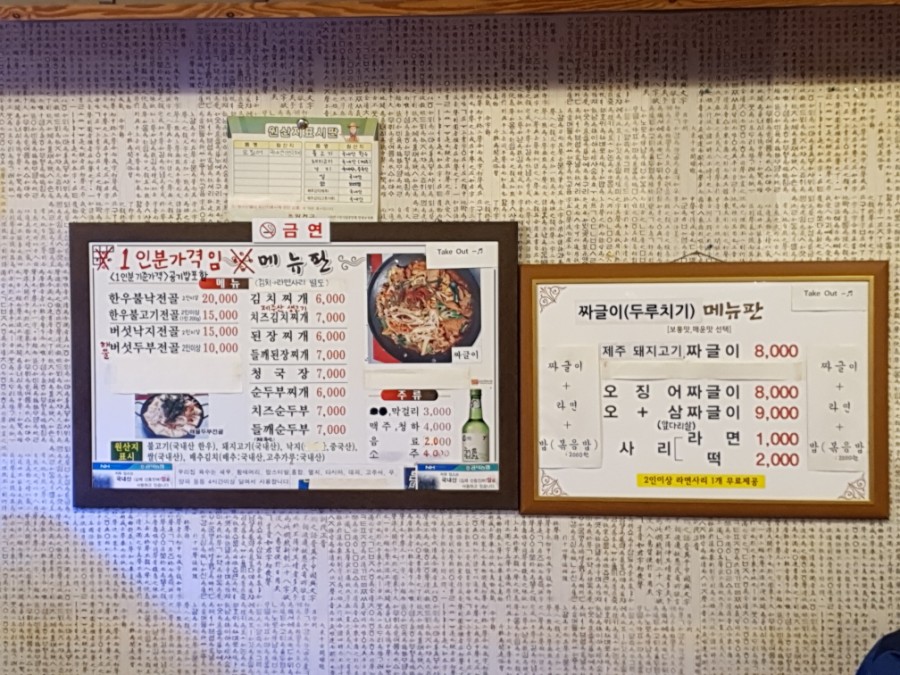 원산지표시판
금연
1인분가격임 메뉴판
Take Out
<1인분기준가격> 공기밥포함
메뉴
(김치·라면사리 별도)
한우불낙전골 2인이상 20,000
한우불고기전골 15,000
버섯낙지전골 2인이상 15,000
버섯두부전골 2인이상 10,000
김치찌개 6,000
치즈김치찌개 7,000
된장찌개 6,000
들깨된장찌개 7,000
청국장 7,000
순두부찌개 6,000
치즈순두부 7,000
들깨순두부 7,000
짜글이
주류
막걸리 3,000
맥주,청하 4,000
음료 2,000
소주 4,000
원산지
표시
불고기(국내산 한우), 돼지고기(국내산), 낙지(중국산),
쌀(국내산), 배추김치(배추:국내산,고추가루:국내산)
국내산
국내산
Take Out
짜글이(두루치기) 메뉴판
[보통맛,매운맛 선택]
제주 돼지고기 짜글이 8,000
오징어짜글이 8,000
오+삼짜글이 9,000
(앞다리살)
사리
라면 1,000
떡 2,000
2인이상 라면사리 1개 무료제공
짜글이
+
라면
+
밥(볶음밥)
짜글이
+
라면
+
밥(볶음밥)